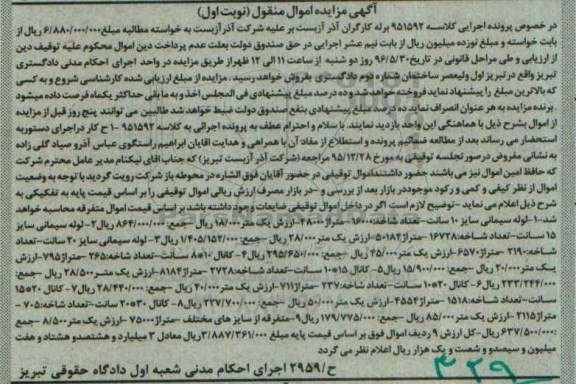 آگهی مزایده اموال منقول (نوبت اول)
در خصوص پرونده اجرایی کلاسه ۹۵۱۵۹۲ برله کارگران آذر آزبست بر علیه شرکت آذر آزبست به خواسته مطالبه مبلغ ۶/۸۸۰/۰۰۰/۰۰۰ ریال از
بابت خواسته و مبلغ نوزده میلیون ریال از بابت نیم عشر اجرایی در حق صندوق دولت بعلت عدم پرداخت دین اموال محکوم علیه توقیف دین
از ارزیابی و طی مراحل قانونی در تاریخ ۹۶/۵/۳۰ روز دو شنبه از ساعت ۱۱ الی ۱۲ ظهر از طریق مزایده در واحد اجرای احکام مدنی دادگستری
تبریز واقع در تبریز اول ولیعصر ساختمان شماره دوم دادگستری بفروش خواهد رسید. مزایده از مبلغ ارزیابی شده کارشناسی شروع و به کسی
که بالاترین مبلغ را پیشنهاد نماید فروخته خواهد شد و ده درصد مبلغ پیشنهادی فی المجلس اخذ و به مابقی حداکثر یکماه فرصت داده میشود
. برنده مزایده به هر عنوان انصراف نماید ده درصد مبلغ پیشنهادی بنفع صندوق دولت ضبط خواهد شد طالبین می توانند پنج روز قبل از مزایده
از اموال بشرح ذیل با هماهنگی این واحد بازدید نمایند. با سلام و احترام عطف به پرونده اجرائی به کلاسه ۹۵۱۵۹۲-۱ ح کار در اجرای دستوریه
استحضار می رساند بعد از مطالعه ضمائیم پرونده و استطلاع از مفاد آن با همراهی و هدایت اقایان ابراهیم راستگوی عباس آذرو صیاد گلی زاده
به نشانی مفروض در صورتجلسه توقیفی به مورخ ۹۵/۱۲/۲۸ مراجعه (شرکت آذر آزبست تبریز) که جناب اقای نیکنام مدیر عامل محترم شرکت
که حافظ امین اموال نیز می باشند حضور داشتند اموال توقیفی در حضور آقایان فوق الشاره در محوطه باز شرکت رویت گردید با توجه به وضعیت
اموال از نظر کیفی و کمی و رکود موجود در بازار بعد از بررسی و -در بازار مصرف ارزش ریالی اموال توقیفی را بر اساس قیمت پایه به تفکیکی به
شرح ذیل اعلام می نماید -توضیح لازم است اگر در داخل اموال توقیفی ضایعات وجود داشته باشد بر اساس قیمت اموال متفرقه محاسبه خواهد
شد-۱-لوله سیمانی سایز ۱۰ سانت-تعداد شاخه: ۱۶۰۰۰ -متراژ ۴۸۰۰۰-ارزش یک متر ۱۸/۰۰۰ ریال -جمع: ۸۶۴/۰۰۰/۰۰۰ ریال-۲-لوله سیمانی سایز
۱۵ سانت-تعداد شاخه: ۱۶۷۲۸ -متراژ ۵۰۱۸۴-ارزش یک متر ۲۸/۰۰۰ ریال -جمع: ۱/۴۰۵/۱۵۲/۰۰۰ ریال ۳-لوله سیمانی سایز ۲۰ سانت-تعداد
شاخه: ۲۱۹۰ -متراژ ۶۵۷۰-ارزش یک متر ۴۵/۰۰۰ ریال -جمع: ۲۹۵/۶۵۰/۰۰۰ ریال ۴-کانال ۱۰*۸ سانت-تعداد شاخه: ۲۶۵ -متراژ ۷۹۵-ارزش
یک متر ۲۰/۰۰۰ ریال -جمع: ۱۵/۹۰۰/۰۰۰ ریال ۵-کانال ۱۵*۱۰ سانت-تعداد شاخه: ۲۷۲۸ -متراژ ۸۱۸۴-ارزش یک متر ۲۸/۵۰۰ ریال -جمع:
۲۳۳/۲۴۴/۰۰۰ ریال ۶-کانال ۲۰*۱۰ سانت-تعداد شاخه: ۲۳۷ -متراژ ۷۱۱-ارزش یک متر ۴۰/۰۰۰ ریال -جمع: ۲۸/۴۴۰/۰۰۰ ریال ۷-کانال ۲۰*۱۵
سانت-تعداد شاخه: ۱۵۱۸ -متراژ ۴۵۵۴-ارزش یک متر ۵۰/۰۰۰ ریال -جمع: ۲۲۷/۷۰۰/۰۰۰ ریال ۸-کانال ۳۰*۲۰ سانت-تعداد شاخه: ۷۰۵ -
متراژ ۲۱۱۵-ارزش یک متر ۸۵/۰۰۰ ریال -جمع: ۱۷۹/۷۷۵/۰۰۰ ریال ۹-متفرقه از سایز های مختلف -متراژ ۷۵۰۰۰ -ارزش یک متر ۸/۵۰۰ -جمع
:۶۳۷/۵۰۰/۰۰۰ ریال-کل ارزش ۹ ردیف اموال فوق بر اساس قیمت پایه مبلغ ۳/۸۸۷/۳۶۱/۰۰۰ ریال معادل ۳ میلیارد و هشتصدو هشتاد و هفت
میلیون و سیصدو و شصت و یک هزار ریال اعلام نظر می گردد
ح/۲۹۵۹ اجرای احکام مدنی شعبه اول دادگاه حقوقی تبریز
۳۲۹